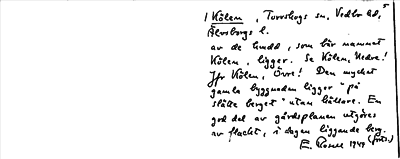 1 Kölen, Torrskogs sn, Vedbo hd, 5
Älvsborgs l.
av de hudd, som bär namnet
Kölen, ligger. Se Kölen, Nedre!
Jfr Kölen, Övre! Den mycket
gamla byggnaden ligger "på
slätte berget" utan källare. En
god del av gårdsplanen utgöres
av flacht, i dagen liggande berg.
E. Rosell 1949 (forts.)